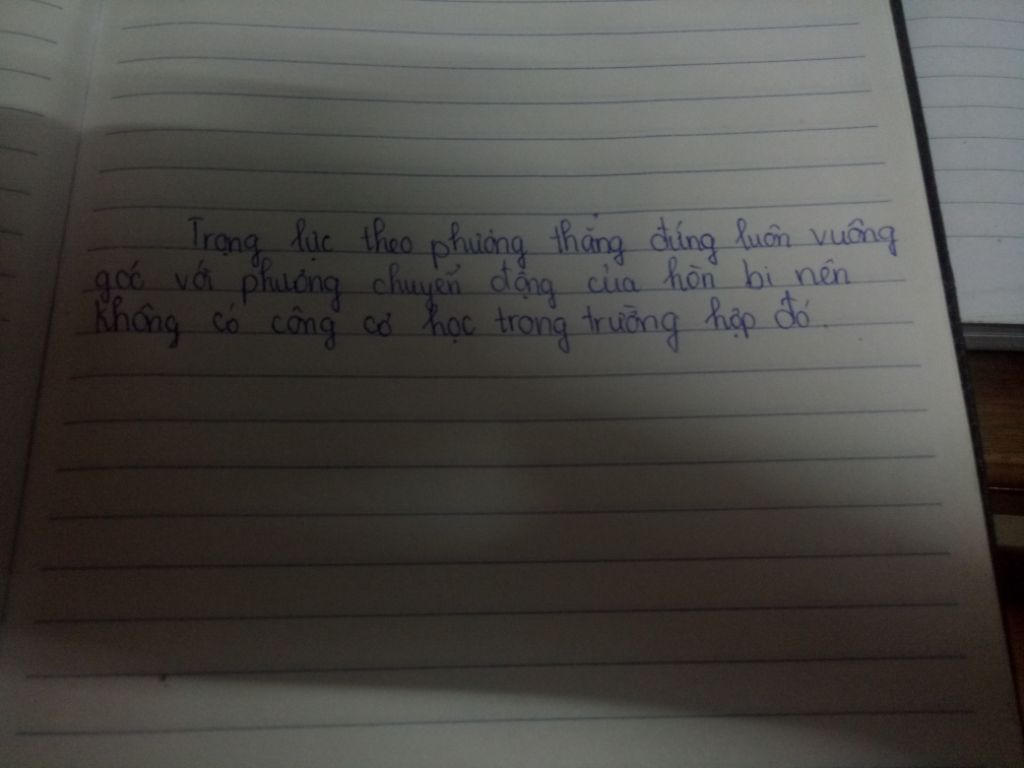 Trọng lực theo phương thẳng đứng luôn vuông
góc với phương chuyển động của hòn bi nên
không có công cơ học trong trường hợp đó.